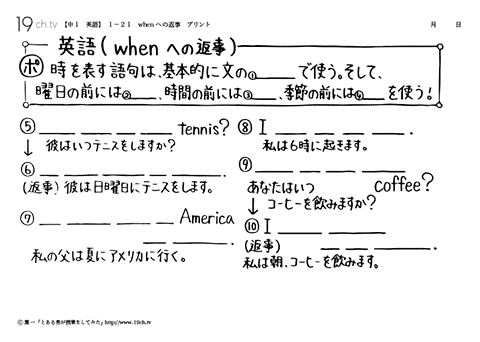 19ch.tv 【中1 英語】 1-21 whenへの返事 プリント 月 日
英語(whenへの返事)
ポ 時を表す語句は、基本的に文の①____で使う。そして、
曜日の前には②____、時間の前には③____、季節の前には④____を使う!
⑤ ____ ____ ____ ____ tennis?
↓ 彼はいつテニスをしますか?
⑥ ____ ____ ____ ____ ____.
(返事) 彼は日曜日にテニスをします。
⑦ ____ ____ ____ ____ America
____ ____.
私の父は夏にアメリカに行く。
⑧ I ____ ____ ____ ____.
私は6時に起きます。
⑨ ____ ____ ____ ____ coffee?
あなたはいつ
↓ コーヒーを飲みますか?
⑩ I ____ ____
(返事) ____ ____ ____.
私は朝、コーヒーを飲みます。
© 葉一「とある男が授業をしてみた」http://www.19ch.tv